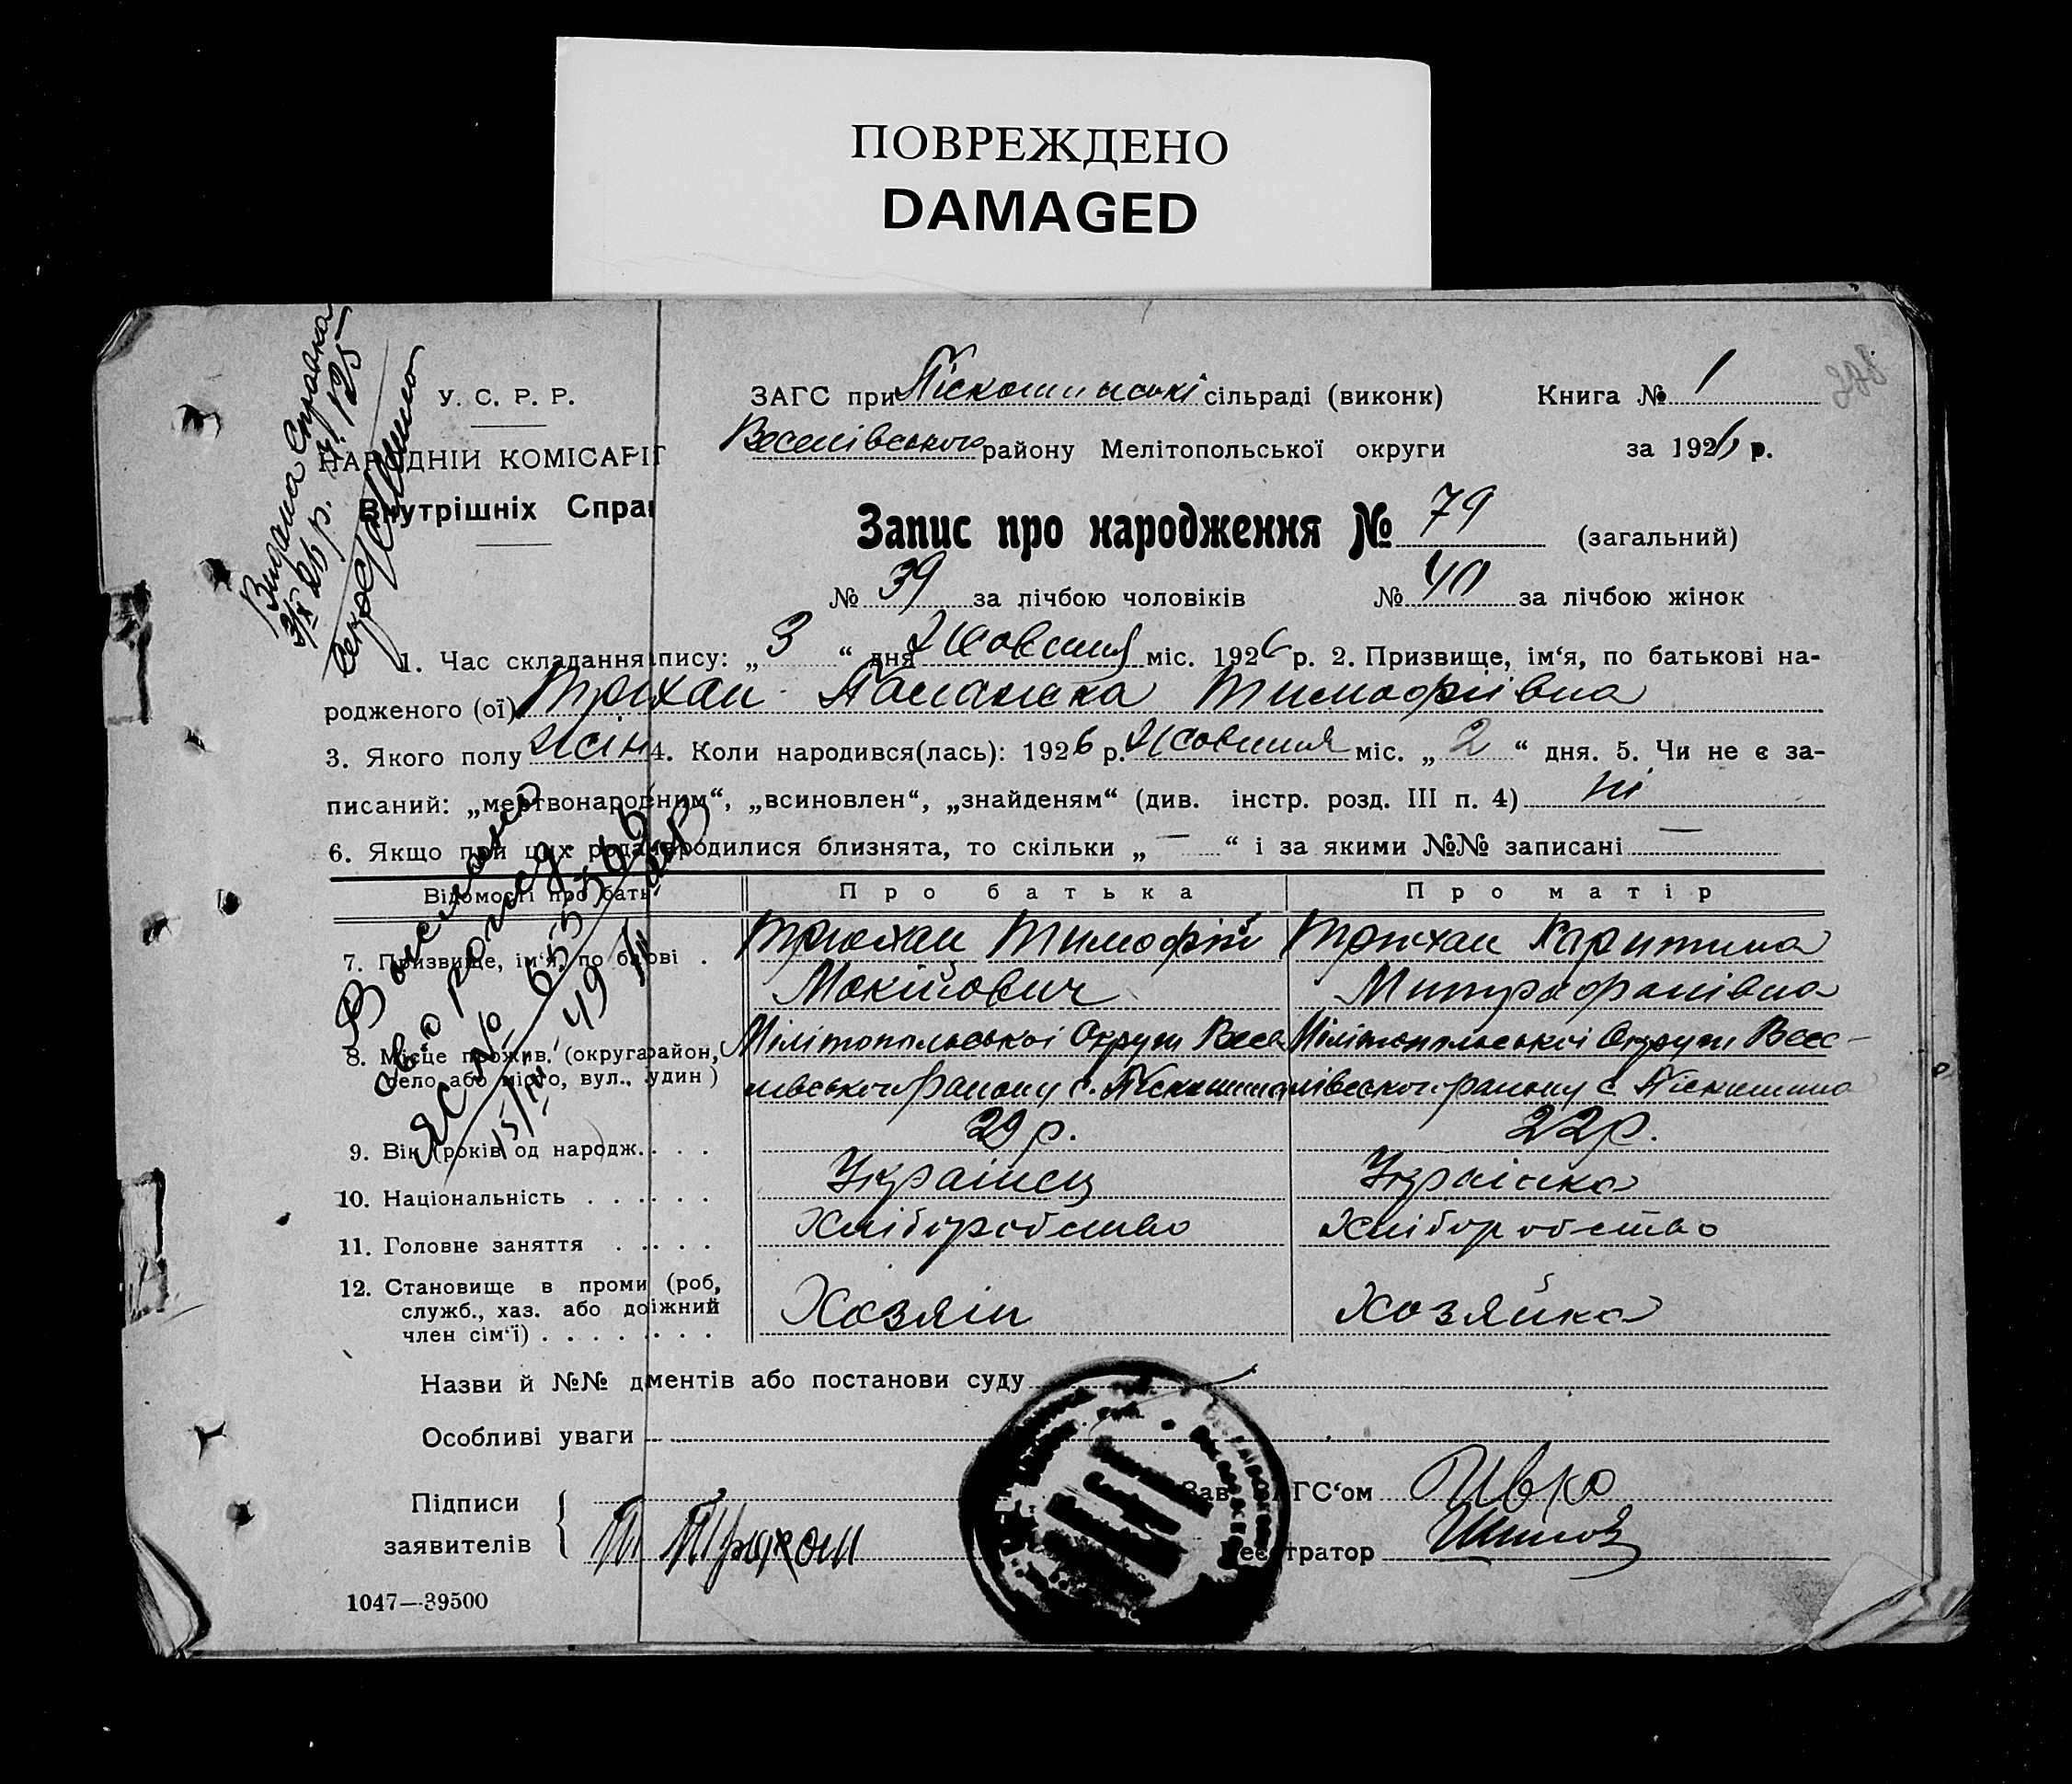 ПОВРЕЖДЕНО
DAMAGED
У. С. Р. Р.
НАРОДНІЙ КОМІСАРІТ
Внутрішніх Справ
Видана Справка
3/ІХ 26 р. № 125
ЗАГС при Піскошинські сільраді (виконк) Книга № 1
Веселівського району Мелітопольської округи за 1926 р.
Запис про народження № 79 (загальний)
№ 39 за лічбою чоловіків № 40 за лічбою жінок
1. Час складання пису: „ 3 “ дня Жовтня міс. 1926 р. 2. Призвище, ім‘я, по батькові на-
родженого (ої) Трюхан Палажка Тимофіївна
3. Якого полу жін 4. Коли народився(лась): 1926 р. Жовтня міс. „ 2 “ дня. 5. Чи не є за-
писаний: „мертвонародним“, „всиновлен“, „знайденям“ (див. інстр. розд. III п. 4) ні
6. Якщо при цих родародилися близнята, то скільки „ — “ і за якими №№ записані —
Відомості про бать Про батька Про матір
7. Призвище, ім‘я, по бові . Трюхан Тимофій Трюхан Харитина
Мокійович Митрофанівна
8. Місце прожив. (округарайон, Мілітопольської Округи Весе Мілітопольської Округи Весе-
село або місто, вул., удин) лівського району с. Піскошина лівського району с. Піскошина
9. Вік (років од народж. . . . 29 р. 22 р.
10. Національність . . . . . . Українец Українка
11. Головне заняття . . . . . Хліборобство Хліборобство
12. Становище в проми (роб, Хозяін Хозяйка
служб., хаз. або доіжний
член сім‘ї) . . . . . . . .
Выслано
св-о о рожд.
ЯС № 655563
15/III 49
Назви й №№ дментів або постанови суду
Особливі уваги
Підписи
заявителів Т. Трюхон
Зав. ЗАГС‘ом Ивко
Реєстратор
1047—39500